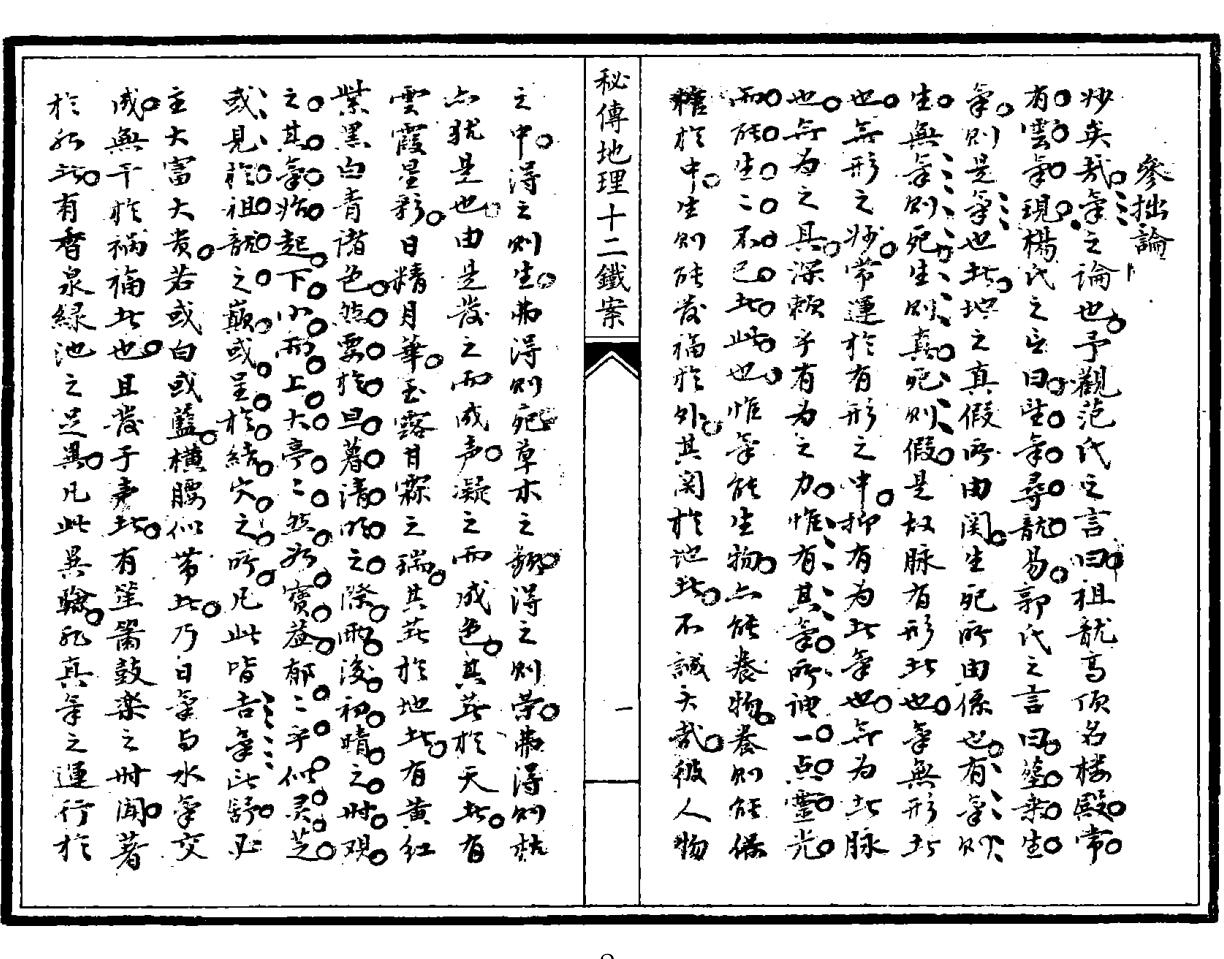 參拙論
妙矣哉氣之論也予觀范氏之言曰祖龍高頂名楼殿常
有雲氣現楊氏之言曰望氣尋龍易郭氏之言曰葬乘生
氣則是氣也此地之真假所由関生死所由係也有氣則
生無氣則死生則真死則假是故脉有形者也氣無形者
也無形之妙常運於有形之中抑有為者氣也無為者脉
也無為之具深賴乎有為之力惟有其氣所神一点靈光
而能生二不已者此也惟氣能生物亦能養物養則能保
於中生則能發福於外其関於地者不誠大哉彼人物
之中得之則生弗得則死草木之類得之則榮弗得則枯
亦犹是也由是發之而成声凝之而成色其在於天者有
雲霞星彩日精月華玉露甘霖之瑞其在於地者有黄紅
紫黑白青諸色然要於旦暮清明之際雨後初晴之时观
之其氣始起下小而上大亭二然如寳盖郁二乎似灵芝
或見於祖龍之巔或呈於結穴之所凡此皆吉氣所
主大富大貴若或白或藍横腰似带者乃日氣与水氣交
成無干於禍福者也且發于声者有笙簫鼓楽之时闻著
於形者有香泉緑池之足異凡此異騐死真氣之運行於
秘傳地理十二鐵案
一